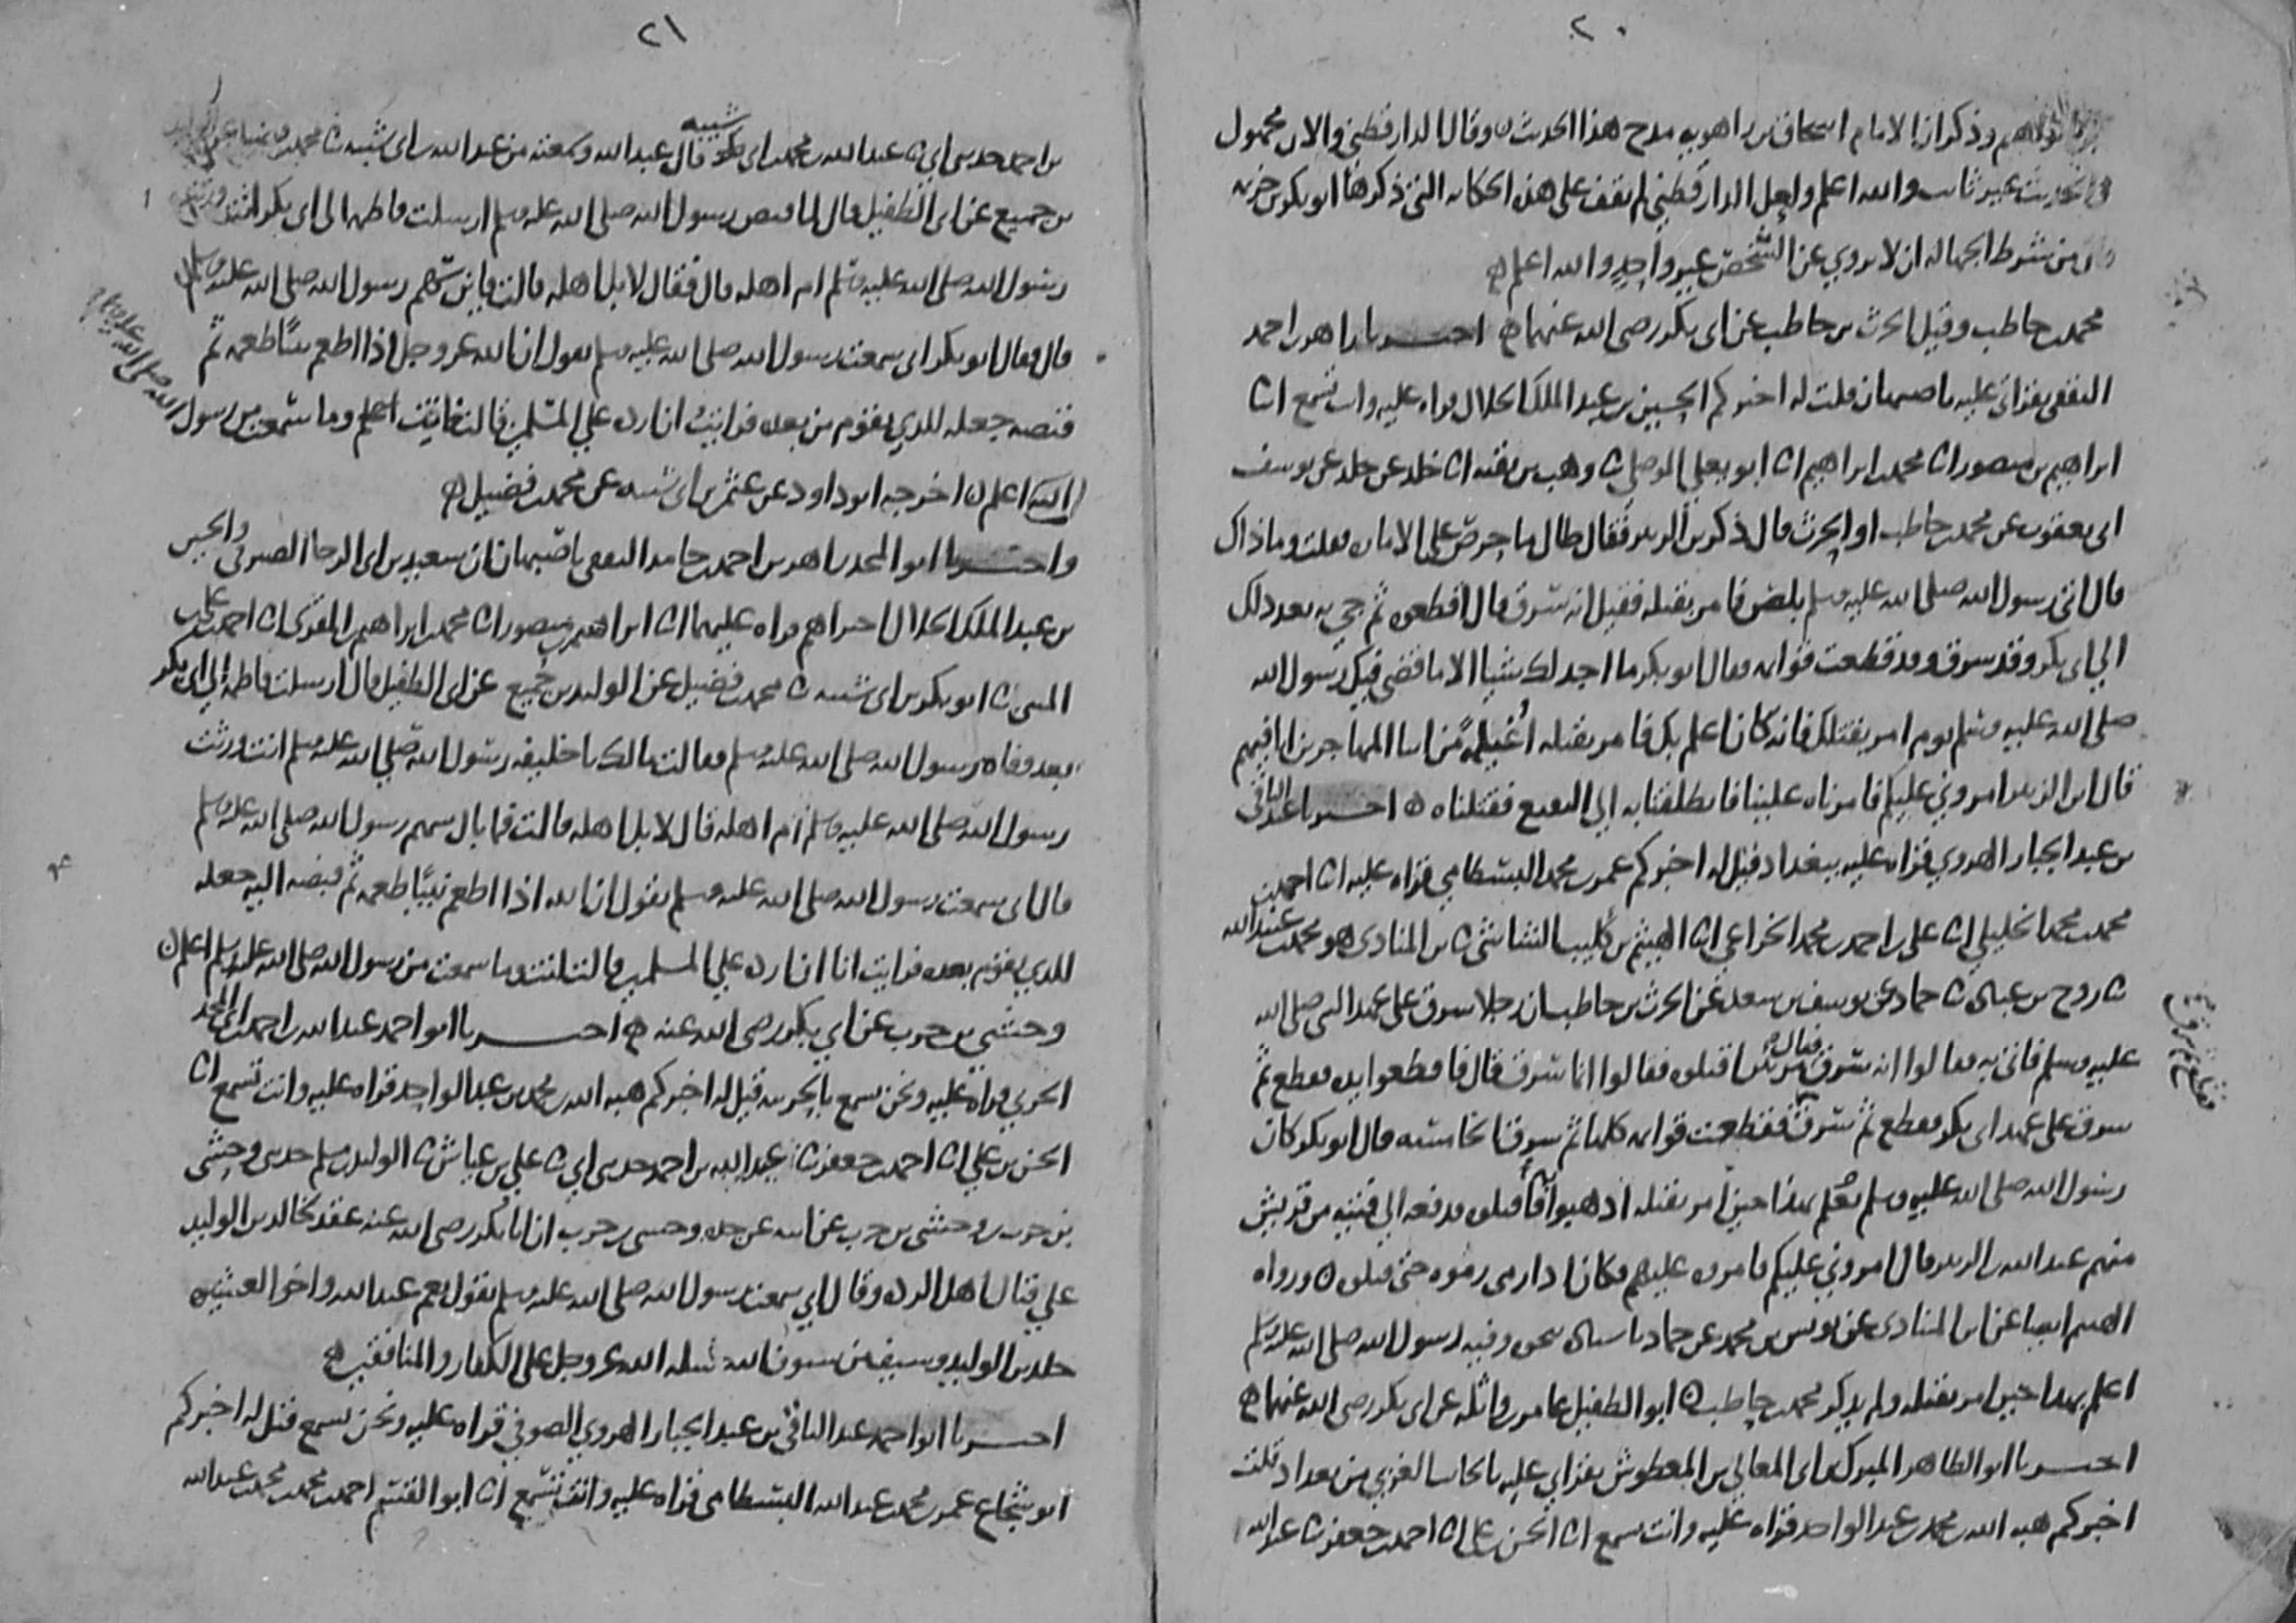 ٢٠
وذكر ان الامام اسحاق بن راهويه مدح هذا الحديث وقال الدارقطني والان مجهول
والحديث غير ثابت والله اعلم ولعل الدارقطني لم يقف على هذه الحكايه التي ذكرها ابو بكر بن خزيمه
من شرط الجهاله ان لا يروي عن الشخص غير واحد والله اعلم ه
محمد بن حاطب وقيل الحرث بن حاطب عن ابي بكر رضي الله عنهما ه اخبرنا زاهر بن احمد
الثقفي بقراتي عليه باصبهان قلت له اخبركم الحسين بن عبد الملك الخلال قراه عليه وانت تسمع انا
ابراهيم بن منصور انا محمد بن ابراهيم انا ابو يعلي الموصلي ثنا وهب بن بقيه انا خلد عن خلد عن يوسف
ابي يعقوب عن محمد بن حاطب او الحرث قال ذكر بن الزبير فقال طال ما حرص على الاماره فقلت وما ذاك
قال اتي رسول الله صلى الله عليه وسلم بلص فامر بقتله فقيل انه سرق قال اقطعوه ثم جي به بعد ذلك
الي ابي بكر وقد سرق وقد قطعت قوايمه فقال ابو بكر ما اجد لك شيا الا ما قضي فيك رسول الله
صلى الله عليه وسلم يوم امر بقتلك فانه كان اعلم بك فامر بقتله اغيلمة من ابنا المهاجرين انا فيهم
قال ابن الزبير امروني عليكم فامرناه علينا فانطلقنا به الي البقيع فقتلناه ه اخبرنا عبد الباقي
بن عبد الجبار الهروي قراه عليه ببغداد قيل له اخبركم عمر بن محمد البسطامي قراه عليه انا احمد بن
محمد بن محمد الخليلي انا علي بن احمد بن محمد الخزاعي انا الهيثم بن كليب الشاشي ثنا بن المنادي هو محمد بن عبيد الله
ثنا روح بن عباده ثنا حماد عن يوسف بن سعد عن الحرث بن حاطب ان رجلا سرق على عهد النبي صلى الله
عليه وسلم فاتي به فقالوا انه سرق فقال اقتلوه فقالوا انما سرق قال فاقطعوا يده فقطع ثم
سرق على عهد ابي بكر فقطع ثم سرق فقطعت قوايمه كلها ثم سرق الخامسه قال ابو بكر كان
رسول الله صلى الله عليه وسلم اعلم بهذا حين امر بقتله اذهبوا به فاقتلوه فدفعه الي فتيه من قريش
منهم عبد الله بن الزبير فقال امروني عليكم فامروه عليهم فكان اذا رمى رموه حتى قتلوه ه ورواه
الهيثم ايضا عن ابن المنادي عن يونس بن محمد عن حماد باسناده نحوه وفيه رسول الله صلى الله عليه وسلم
اعلم بهذا حين امر بقتله ولم يذكر محمد بن حاطب ه ابو الطفيل عامر بن واثله عن ابي بكر رضي الله عنهما ه
اخبرنا ابو الطاهر المبرك بن ابي المعالي بن المعطوش بقراتي عليه بالجانب الغربي من بغداد قلت
اخبركم هبه الله بن محمد بن عبد الواحد قراه عليه وانت تسمع انا الحسن بن علي انا احمد بن جعفر ثنا عبد الله
٢١
بن احمد حدثني ابي ثنا عبد الله بن محمد بن ابي شيبه قال عبد الله وسمعته من عبد الله بن ابي شيبه ثنا محمد بن فضيل عن الوليد
بن جميع عن ابي الطفيل قال لما قبض رسول الله صلى الله عليه وسلم ارسلت فاطمه الى ابي بكر انت ورثت
رسول الله صلى الله عليه وسلم ام اهله قال فقال لا بل اهله قالت فاين سهم رسول الله صلى الله عليه وسلم
قال فقال ابو بكر اني سمعت رسول الله صلى الله عليه وسلم يقول ان الله عز وجل اذا اطعم نبيا طعمه ثم
قبضه جعله للذي يقوم من بعده فرايت ان ارده علي المسلمين قالت فانت اعلم وما سمعت من رسول
الله صلى الله عليه وسلم
الله اعلم ه اخرجه ابو داود عن عثمن بن ابي شيبه عن محمد بن فضيل ه
واخبرنا ابو المجد زاهر بن احمد بن حامد الثقفي باصبهان ان سعيد بن ابي الرجا الصيرفي والحسين
بن عبد الملك الخلال اخبراهم قراه عليهما انا ابراهيم بن منصور انا محمد بن ابراهيم المقري انا احمد بن علي بن
المثنى ثنا ابو بكر بن ابي شيبه ثنا محمد بن فضيل عن الوليد بن جميع عن ابي الطفيل قال ارسلت فاطمه الي ابي بكر
بعد وفاه رسول الله صلى الله عليه وسلم فقالت مالك يا خليفه رسول الله صلى الله عليه وسلم انت ورثت
رسول الله صلى الله عليه وسلم ام اهله قال لا بل اهله قالت فما بال سهم رسول الله صلى الله عليه وسلم
قال اني سمعت رسول الله صلى الله عليه وسلم يقول ان الله اذا اطعم نبيا طعمه ثم قبضه اليه جعله
للذي يقوم بعده فرايت انا ان ارده علي المسلمين قالت انت وما سمعت من رسول الله صلى الله عليه وسلم اعلم ه
وحشي بن حرب عن ابي بكر رضي الله عنه ه اخبرنا ابو احمد عبد الله بن احمد بن ابي المجد
الحربي قراه عليه ونحن نسمع بالحربيه قيل له اخبركم هبه الله بن محمد بن عبد الواحد قراه عليه وانت تسمع انا
الحسن بن علي انا احمد بن جعفر ثنا عبد الله بن احمد حدثني ابي ثنا علي بن عياش ثنا الوليد بن مسلم حدثني وحشي
بن حرب بن وحشي بن حرب عن ابيه عن جده وحشي بن حرب ان ابا بكر رضي الله عنه عقد لخالد بن الوليد
علي قتال اهل الرده وقال اني سمعت رسول الله صلى الله عليه وسلم يقول نعم عبد الله واخو العشيره
خلد بن الوليد وسيف من سيوف الله سله الله عز وجل على الكفار والمنافقين ه
اخبرنا ابو احمد عبد الباقي بن عبد الجبار الهروي الصوفي قراه عليه ونحن نسمع قيل له اخبركم
ابو شجاع عمر بن محمد بن عبد الله البسطامي قراه عليه وانت تسمع انا ابو القسم احمد بن محمد بن محمد بن عبد الله